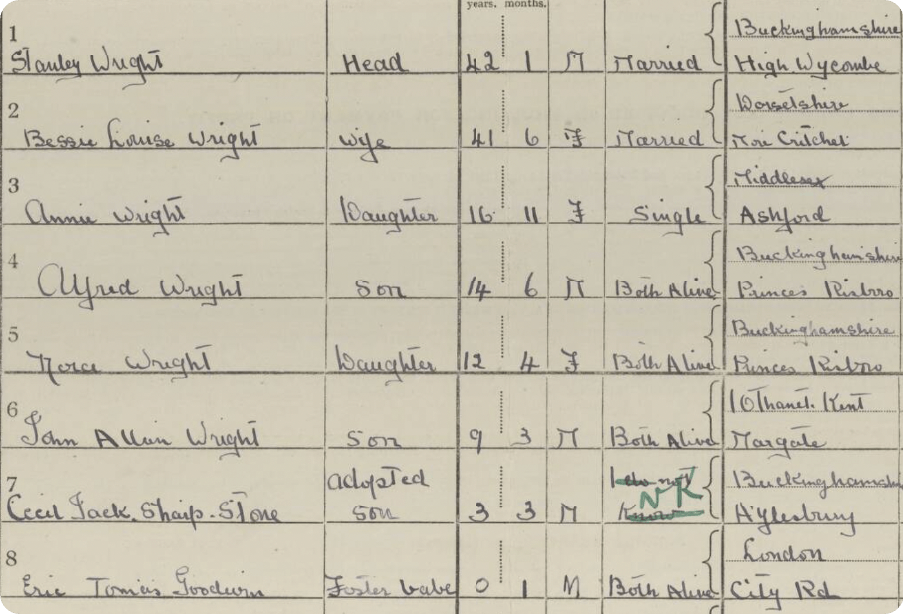 years. months.
1 Buckinghamshire
Stanley Wright Head 42 1 M Married High Wycombe
2 Dorsetshire
Bessie Louise Wright Wife 41 6 F Married More Critchel
3 Middlesex
Annie Wright Daughter 16 11 F Single Ashford
4 Buckinghamshire
Alfred Wright Son 14 6 M Both Alive Princes Risboro
5 Buckinghamshire
Wright Daughter 12 4 F Both Alive Princes Risboro
6 IOThanet. Kent
John Allan Wright Son 9 3 M Both Alive Margate
7 adopted I do not Buckinghamshire
NK
Cecil Jack. Sharp. Stone son 3 3 M Know Aylesbury
8 London
Eric Tomas Goodwin Foster babe 0 1 M Both Alive City Rd